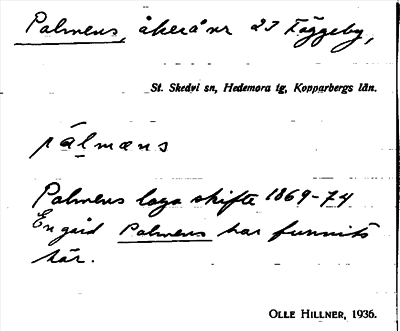 Palmens, åker å nr 27 Täggeby,
St. Skedvi sn, Hedemora tg, Kopparbergs län.
pálmæns
Palmens laga skifte 1869-74
En gård Palmens har funnits
här.
OLLE HILLNER, 1936.